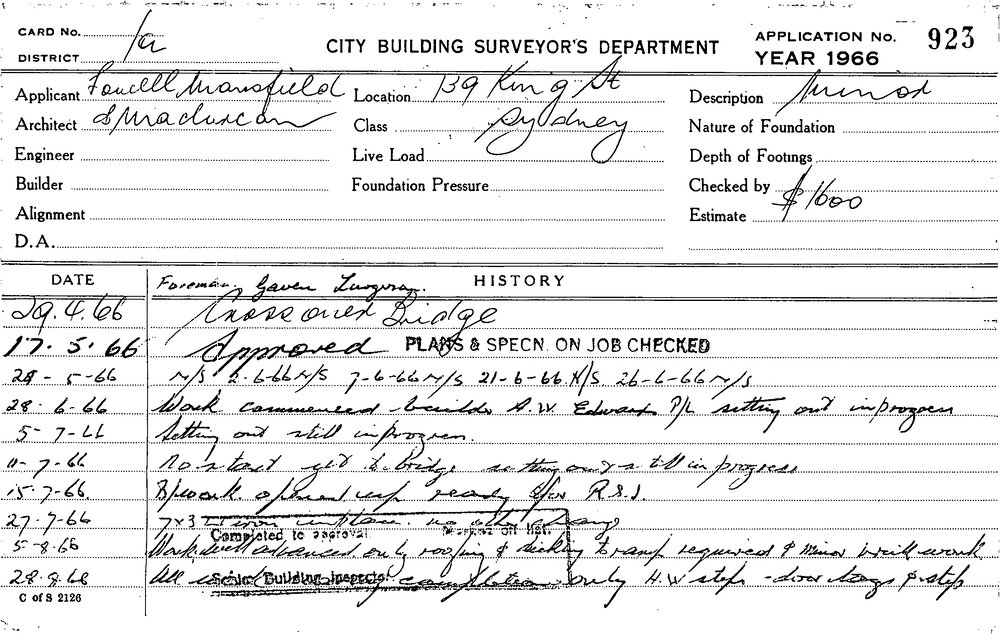 CARD No. 1a
DISTRICT
CITY BUILDING SURVEYOR'S DEPARTMENT
APPLICATION No. 923
YEAR 1966
Applicant Fowell Mansfield
Architect & Maclurcan
Engineer
Builder
Alignment
D.A.
Location 139 King St
Class Sydney
Live Load
Foundation Pressure
Description Minor
Nature of Foundation
Depth of Footings
Checked by
Estimate $1600
DATE
HISTORY
Foreman. Gaven
29.4.66 Cross over Bridge
17.5.66 Approved PLANS & SPECN. ON JOB CHECKED
-5-66 N/S 2-6-66 N/S 7-6-66 N/S 21-6-66 N/S 26-6-66 N/S
28-6-66 Work commenced builder A.W. Edwards P/L setting out in progress
5-7-66 Setting out still in progress.
11-7-66 No start yet to bridge setting out still in progress
15-7-66. B/work opened up ready for R.S.J.
27-7-66 7x3 in place. no other
Completed to approval off list.
5-8-66 Work well advanced only roofing & decking to ramp required & minor brick work
Senior Building Inspector
28.8.68 All completion only H.W steps - door & step
C of S 2126